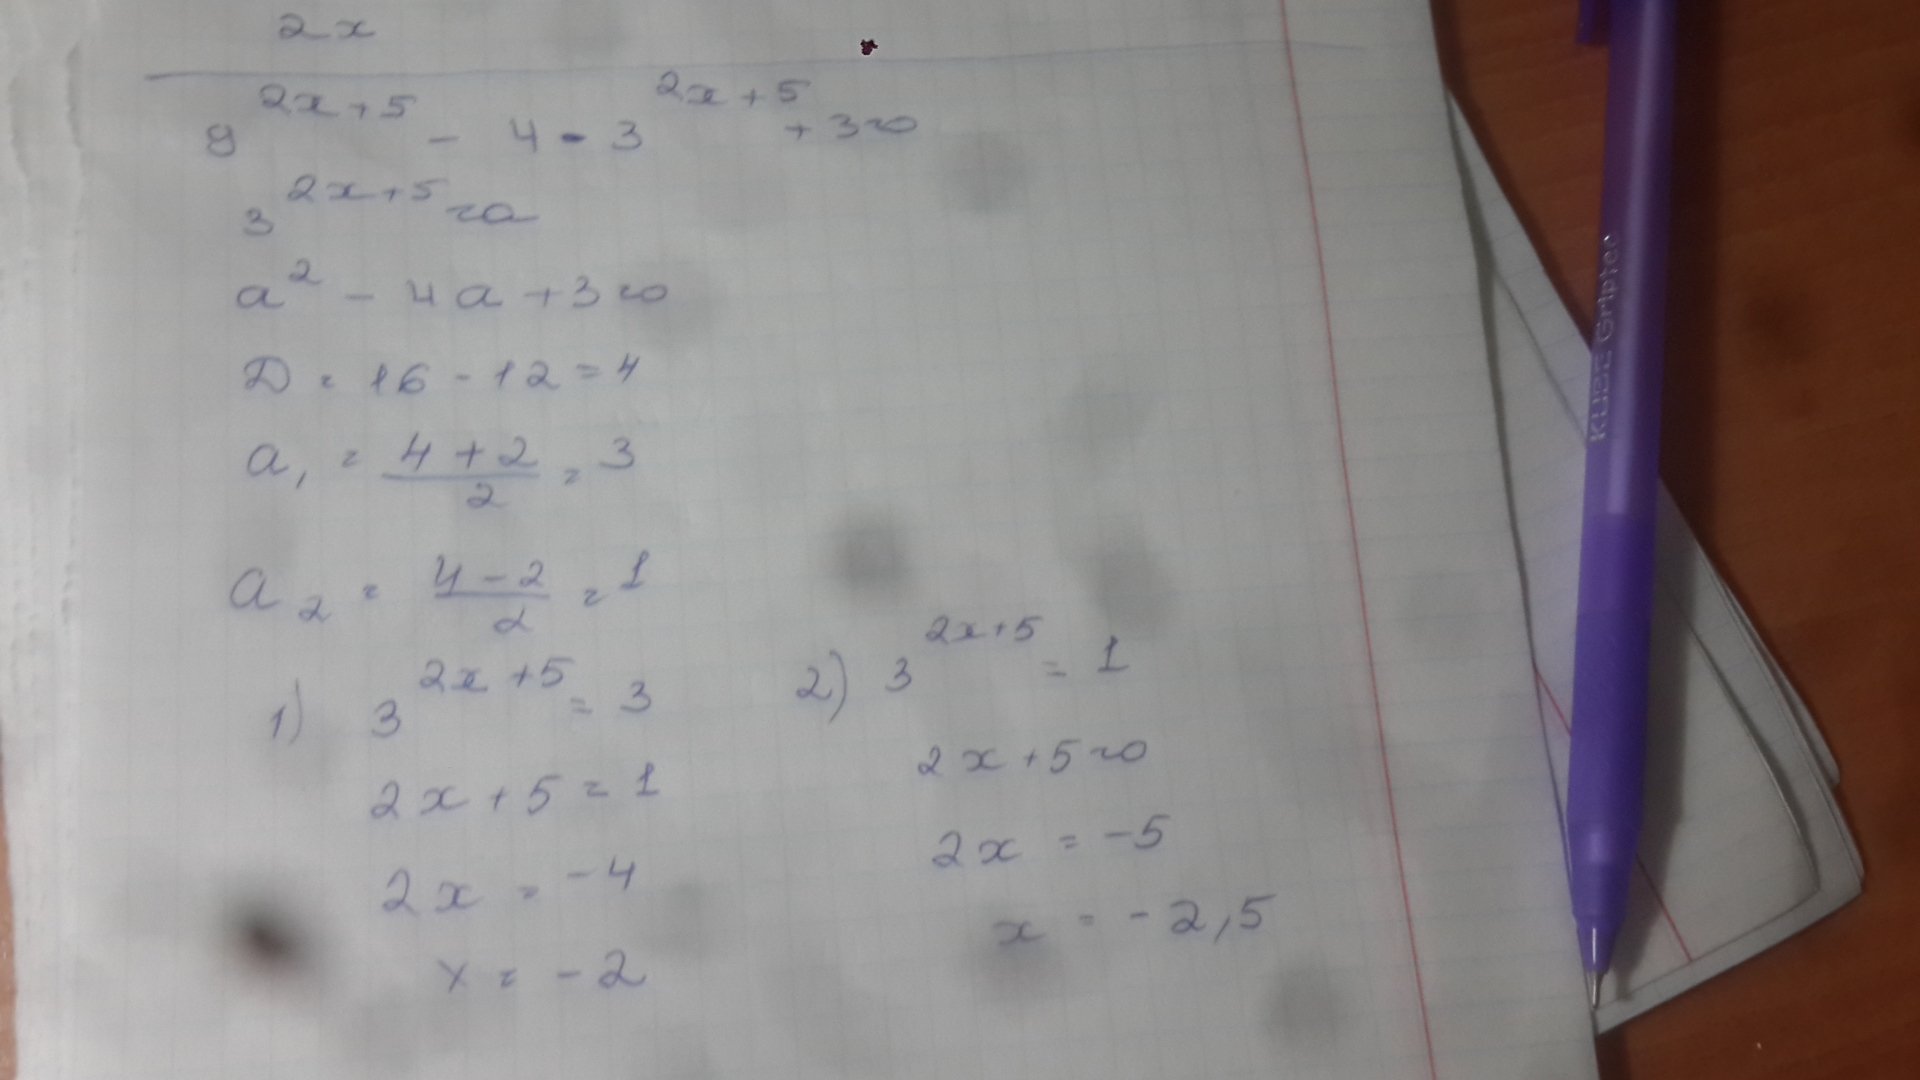 2x
9^{2x+5} - 4 · 3^{2x+5} + 3 = 0
3^{2x+5} = a
a² - 4a + 3 = 0
D = 16 - 12 = 4
a₁ = \frac{4+2}{2} = 3
a₂ = \frac{4-2}{2} = 1
1) 3^{2x+5} = 3
2x + 5 = 1
2x = -4
x = -2
2) 3^{2x+5} = 1
2x + 5 = 0
2x = -5
x = -2,5
KUBE Griptec